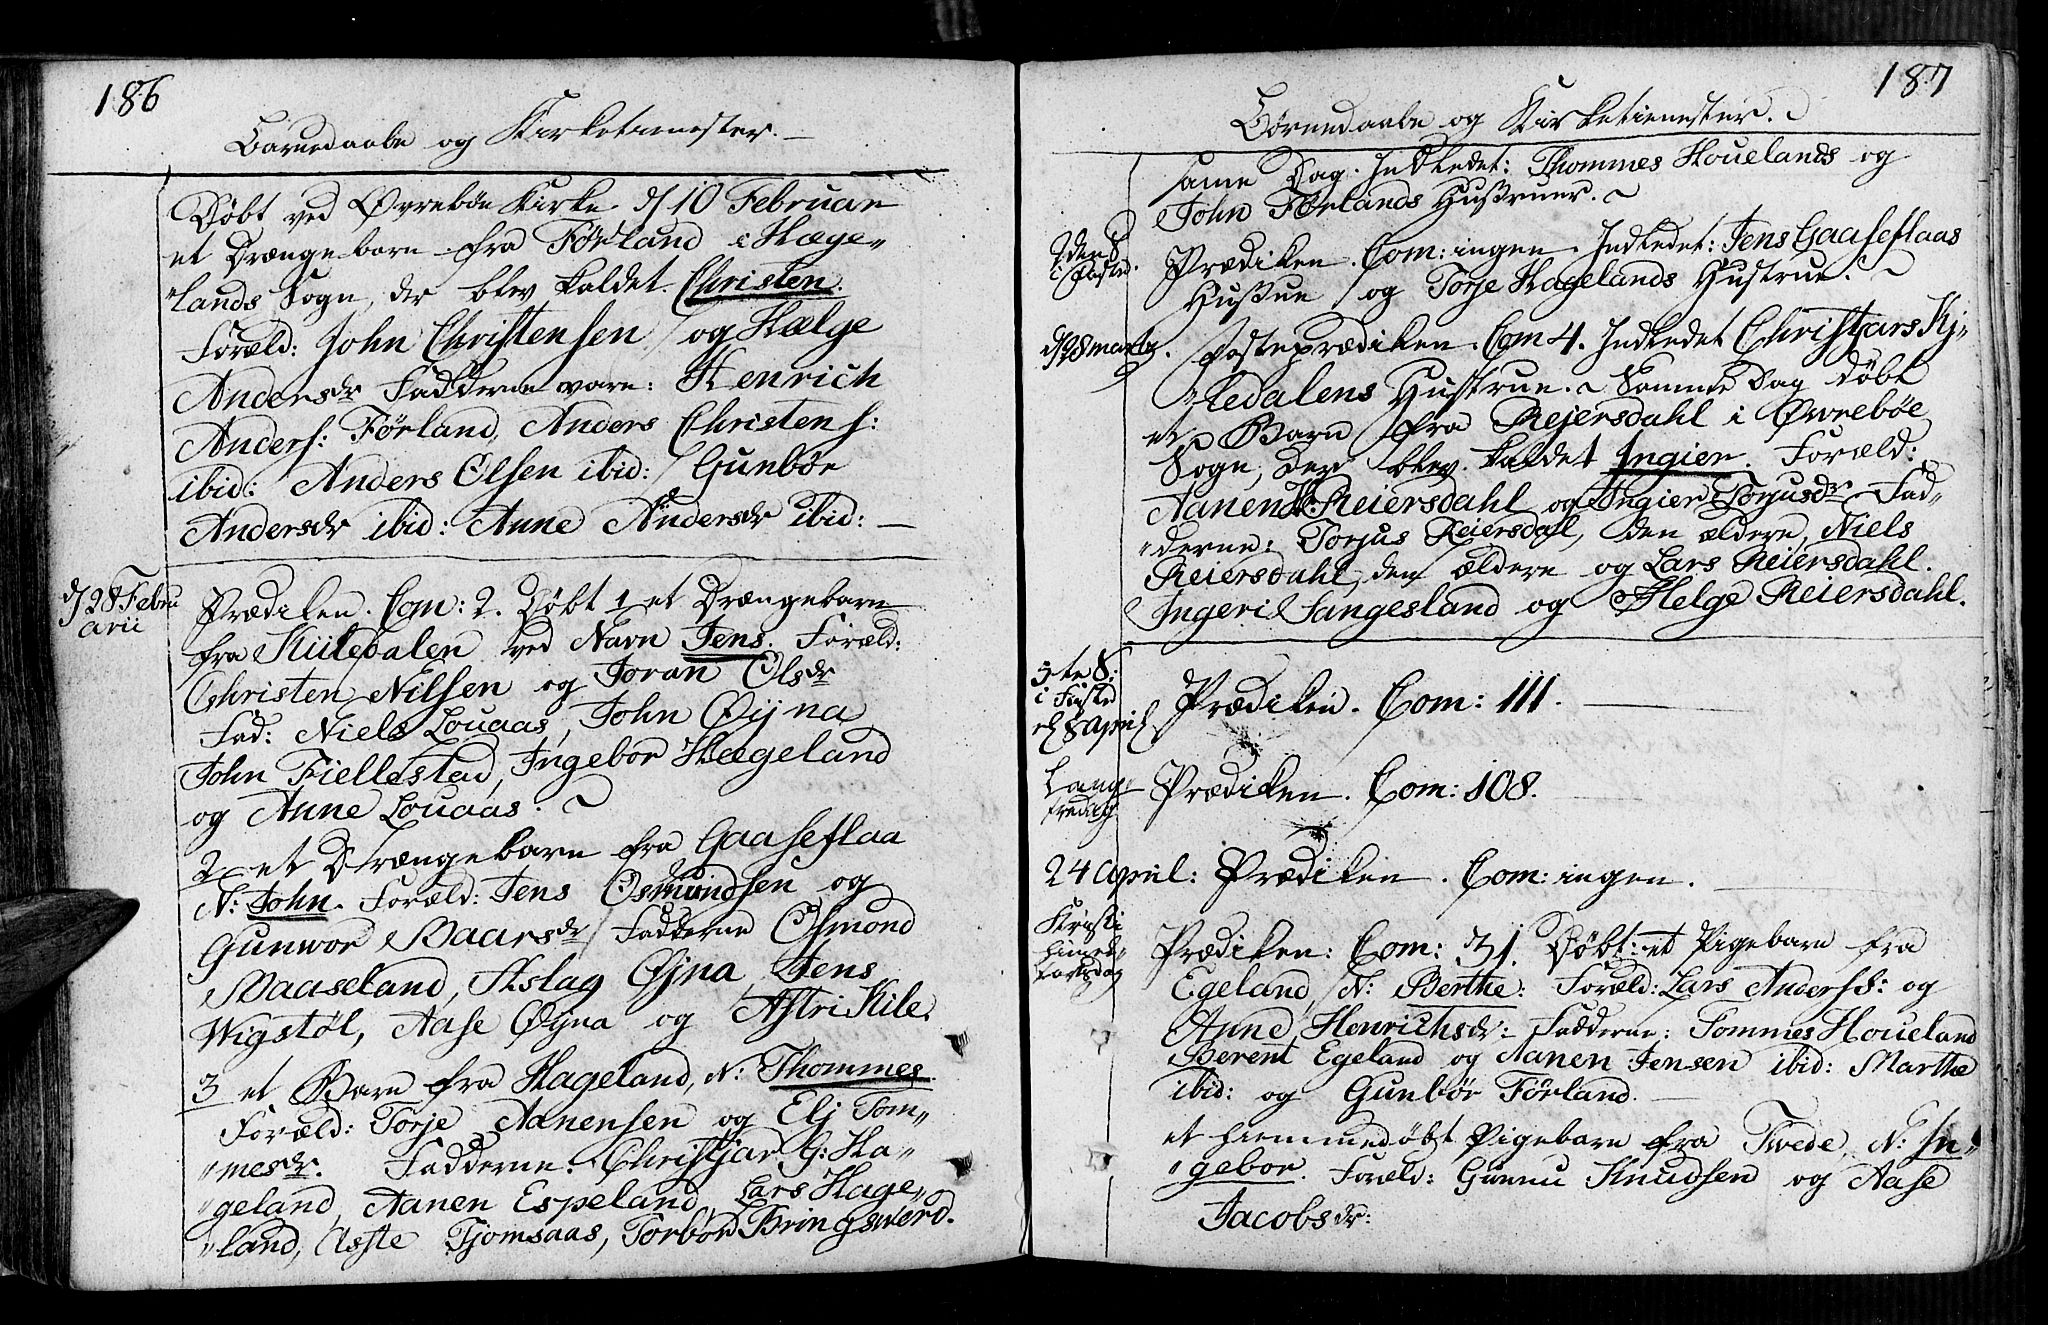 186
Barnedaabe og Kirketienester.
Døbt ved Øvrebøe Kirke d/ 10 Februar
et Drængebarn fra Førland i Hæge„
„lands Sogn, der blev kaldet Christen.
Foræld: John Christensen og Hælge
Andersdr Fadderne vare: Henrich
Anders: Førland, Anders Christens:
ibid: Anders Olsen ibid: Gunbør
Andersdr ibid: Anne Andersdr ibid: —
d/ 28 Febru
arii
Prædiken. Com: 2. Døbt 1 et Drængebarn
fra Kiiledalen ved Navn Jens. Foræld:
Christen Nilsen og Joran Olsdr
Fad: Niels Louaas, John Øijna
John Fiellestad, Ingebor Hægeland
og Anne Louaas.
2 et Drængebarn fra Gaaseflaa
N: John. Foræld: Jens Osmundsen og
Gunwor Baarsdr Fadderne Osmond
Baaseland, Aslag Øjna, Jens
Wigstøl, Aase Øijna og Astri Kile.
3 et Barn fra Hageland, N: Thommes
Foræld: Torje Aanensen og Elj Tom„
„mesdr. Fadderne. Christjar G: Ha„
„geland, Aanen Espeland, Lars Hage„
„land, Aaste Tjomsaas, Torbør Bringswerd.
187
Børnedaabe og Kirketienester.
same Dag. Indledet: Thommes Houelands og
John Førlands Hustruer.
2den S
i Faste.
Prædiken. Com: ingen. Indledet: Jens Gaaseflaas
Hustrue og Torje Hagelands Hustrue.
d/ 28 marty.
Fasteprædiken. Com 4. Indledet Christjars Kj„
„ledalens Hustrue. Samme Dag døbt
et Barn fra Rejersdahl i Øvrebøe
Sogn, der blev kaldet Ingier. Foræld:
Aanen Reiersdahl og Ingier Torjusdr Fad„
„derne: Torjus Reiersdahl, den ældere, Niels
Reiersdahl, den ældere og Lars Reiersdahl.
Ingeri Sangesland og Helge Reiersdahl.
5te S:
i Faste
d/ 8 April
Prædiken. Com: 111.
Lang„
fredag
Prædiken. Com: 108.
24 April: Prædiken. Com: ingen.
Kristi
himel„
fartsdag
Prædiken: Com: 31. Døbt: et Pigebarn fra
Egeland, N: Berthe: Foræld: Lars Anders: og
Anne Henrichsdr: Fadderne: Tommes Houeland
Berent Egeland og Aanen Jensen ibid: Marthe
ibid: og Gunbør Førland.
et hiemmedøbt Pigebarn fra Twede, N: In„
„gebor. Foræld: Gunnu Knudsen og Aase
Jacobsdr: